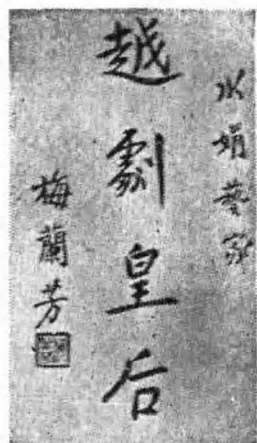 水娟藝家
越劇皇后
梅蘭芳